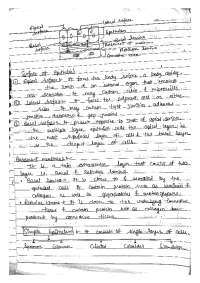 Lateral surface
Apical
surface
Epithelium
Basal
surface
Basal lamina
Basement m
Reticular lamina
Connective tissue
Surfaces of Epithelial
① Apical surface: It faces the body surface, a body cavity,
the lumen of an internal organ that receives
cell secretion. It may contain cilia & microvilli.
② Lateral surface: It faces the adjacent cell on either
side. It may contain tight junction, adherens
junction, desmosomes & gap junction.
③ Basal surface: It present opposite to that of apical surface.
In multiple layer epithelial cells the apical layer is
the most superficial layer of cells & the basal layer
is the deepest layer of cells.
Basement membrane:
It is a thin extracellular layer that consists of two
layer i.e. Basal & Reticular lamina.
• Basal lamina: It is close to & secreted by the
epithelial cells. It contain protein such as laminin &
collagen as well as glycoproteins & proteoglycans.
• Reticular lamina: It is close to the underlying connective
tissue & contain protein such as collagen
produced by connective tissue.
Simple Epithelium: It consists of single layer of cells.
Ciliated